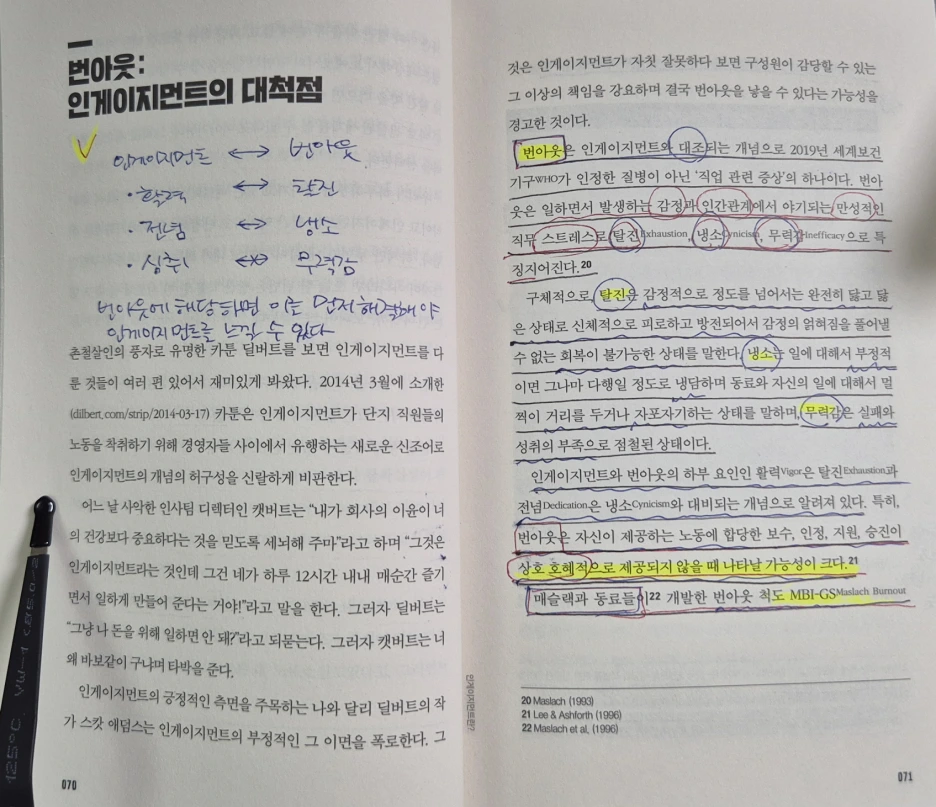 번아웃:
인게이지먼트의 대척점
V
인게이지먼트 ↔ 번아웃
· 활력 ↔ 탈진
· 전념 ↔ 냉소
· 성취 ↔ 무력감
번아웃에 해당되면 이를 먼저 해결해야
인게이지먼트를 느낄 수 있다
촌철살인의 풍자로 유명한 카툰 딜버트를 보면 인게이지먼트를 다
룬 것들이 여러 편 있어서 재미있게 봐왔다. 2014년 3월에 소개한
(dilbert.com/strip/2014-03-17) 카툰은 인게이지먼트가 단지 직원들의
노동을 착취하기 위해 경영자들 사이에서 유행하는 새로운 신조어로
인게이지먼트의 개념의 허구성을 신랄하게 비판한다.
어느 날 사악한 인사팀 디렉터인 캣버트는 “내가 회사의 이윤이 너
의 건강보다 중요하다는 것을 믿도록 세뇌해 주마”라고 하며 “그것은
인게이지먼트라는 것인데 그건 네가 하루 12시간 내내 매순간 즐기
면서 일하게 만들어 준다는 거야!”라고 말을 한다. 그러자 딜버트는
“그냥 나 돈을 위해 일하면 안 돼?”라고 되묻는다. 그러자 캣버트는 너
왜 바보같이 구냐며 타박을 준다.
인게이지먼트의 긍정적인 측면을 주목하는 나와 달리 딜버트의 작
가 스캇 애덤스는 인게이지먼트의 부정적인 그 이면을 폭로한다. 그
070
인게이지먼트란?
것은 인게이지먼트가 자칫 잘못하다 보면 구성원이 감당할 수 있는
그 이상의 책임을 강요하며 결국 번아웃을 낳을 수 있다는 가능성을
경고한 것이다.
번아웃은 인게이지먼트와 대조되는 개념으로 2019년 세계보건
기구WHO가 인정한 질병이 아닌 ‘직업 관련 증상’의 하나이다. 번아
웃은 일하면서 발생하는 감정과 인간관계에서 야기되는 만성적인
직무 스트레스로 탈진Exhaustion, 냉소Cynicism, 무력감Inefficacy으로 특
징지어진다.20
구체적으로, 탈진은 감정적으로 정도를 넘어서는 완전히 닳고 닳
은 상태로 신체적으로 피로하고 방전되어서 감정의 얽혀짐을 풀어낼
수 없는 회복이 불가능한 상태를 말한다. 냉소는 일에 대해서 부정적
이면 그나마 다행일 정도로 냉담하며 동료와 자신의 일에 대해서 멀
찍이 거리를 두거나 자포자기하는 상태를 말하며, 무력감은 실패와
성취의 부족으로 점철된 상태이다.
인게이지먼트와 번아웃의 하부 요인인 활력Vigor은 탈진Exhaustion과
전념Dedication은 냉소Cynicism와 대비되는 개념으로 알려져 있다. 특히,
번아웃은 자신이 제공하는 노동에 합당한 보수, 인정, 지원, 승진이
상호 호혜적으로 제공되지 않을 때 나타날 가능성이 크다.21
매슬랙과 동료들이22 개발한 번아웃 척도 MBI-GSMaslach Burnout
20 Maslach (1993)
21 Lee & Ashforth (1996)
22 Maslach et al. (1996)
071